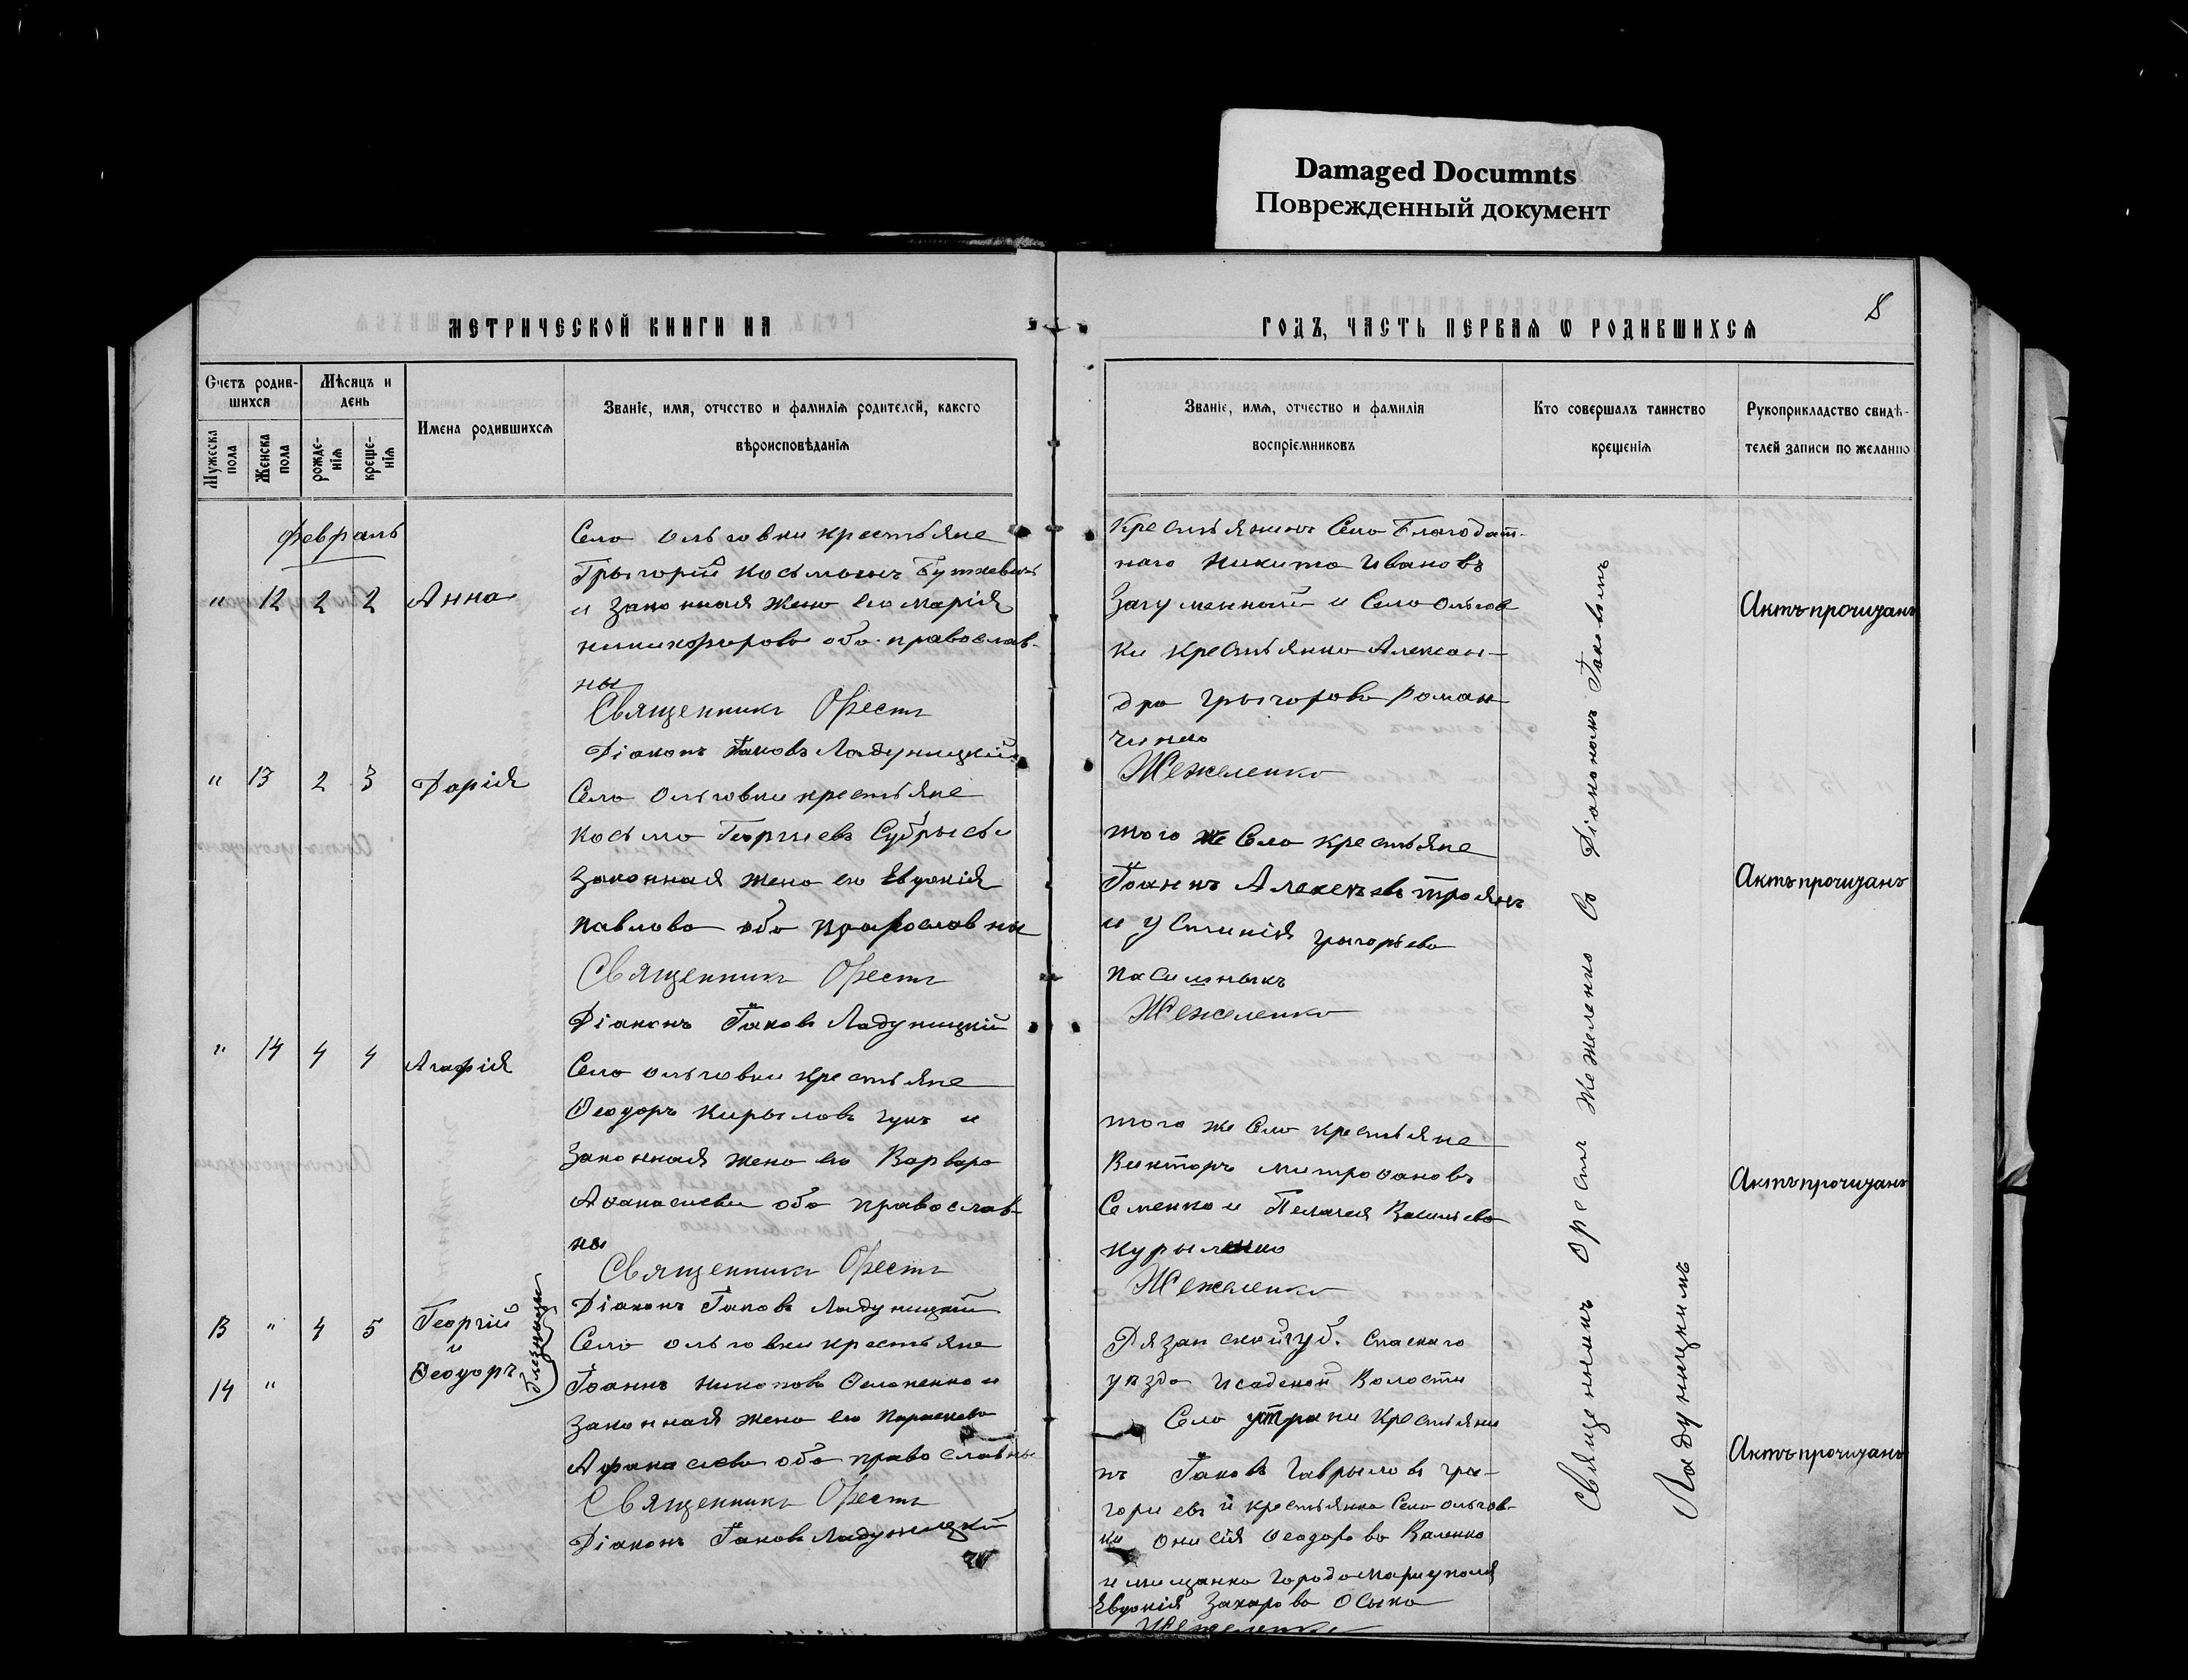 Damaged Documnts
Поврежденный документ
8
МЕТРИЧЕСКОЙ КНИГИ НА
ГОДЪ, ЧАСТЬ ПЕРВАЯ Ѡ РОДИВШИХСЯ
Счетъ родив-
шихся
Мужеска
пола
Женска
пола
Мѣсяцъ и
день
рожде-
нія
креще-
нія
Имена родившихся
Званіе, имя, отчество и фамилія родителей, какого
вѣроисповѣданія
Званіе, имя, отчество и фамилія
воспріемниковъ
Кто совершалъ таинство
крещенія
Рукоприкладство свидѣ-
телей записи по желанію
Февраль
" 12 2 2 Анна
Село Ольговки крестьяне
Грыгорій Косьминъ Буткевичъ
и законная жена его Марія
Никифорова оба православ-
ны
Священникъ Орестъ
Діаконъ Іаковъ Ладуницкій
Крестьянинъ Села Благодат-
наго Никита Ивановъ
Загуменный и Села Ольгов
ки крестьянка Алексан-
дра Грыгорова Роман
чинко
Жежеленко
Актъ прочизанъ
" 13 2 3 Дарія
Село Ольговки крестьяне
Косьма Георгіевъ
законная жена его Евдокія
Павлова оба православны
Священникъ Орестъ
Діаконъ Іаковъ Ладуницкій
того же Села крестьяне
Іоаннъ Алексѣевъ Троянъ
и Устинія Грыгорьева
Жежеленко
Актъ прочизанъ
" 14 4 4 Агафія
Село Ольговки крестьяне
Ѳеодоръ Кирыловъ Гукъ и
законная жена его Варвара
Аѳанасиева оба православ-
ны
Священникъ Орестъ
Діаконъ Іаковъ Ладуницкій
того же Села крестьяне
Викторъ Митрофановъ
Семенко и Пелагея Васильева
Курыленко
Жежеленко
Актъ прочизанъ
13 " 4 5 Георгій
и
14 " Ѳеодоръ
близнецы
Село Ольговки крестьяне
Іоаннъ Никоновъ
законная жена его Параскева
Афанасиева оба православны
Священникъ Орестъ
Діаконъ Іаковъ Ладуницкій
Рязанской губ. Спаскаго
уезда Исадской Волости
Села крестьяни
нъ Іаковъ Гаврыловъ Гры-
горіевъ и крестьянка Села Ольгов-
ки Онисія Ѳеодорова Валенко
и мищанка города Мариуполя
Евдокія Захарова Осыка
Жежеленко
Актъ прочизанъ
Священникъ Орестъ Жежеленко Со Діакономъ Іаковомъ
Ладуницкимъ